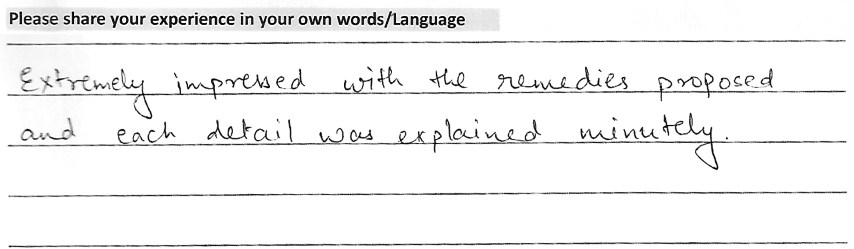 Please share your experience in your own words/Language
Extremely impressed with the remedies proposed
and each detail was explained minutely.